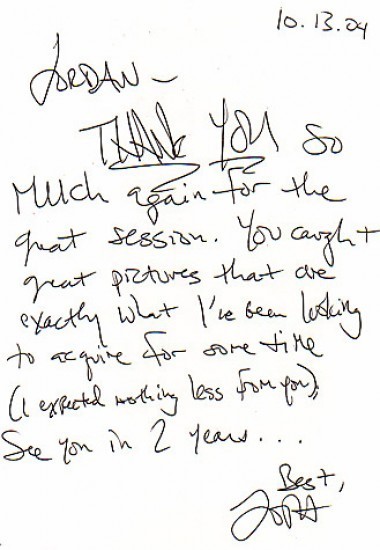 10.13.04
JORDAN —
THANK YOU so
much again for the
great session. You caught
great pictures that are
exactly what I've been looking
to acquire for some time
(I expected nothing less from you);
See you in 2 years...
Best,